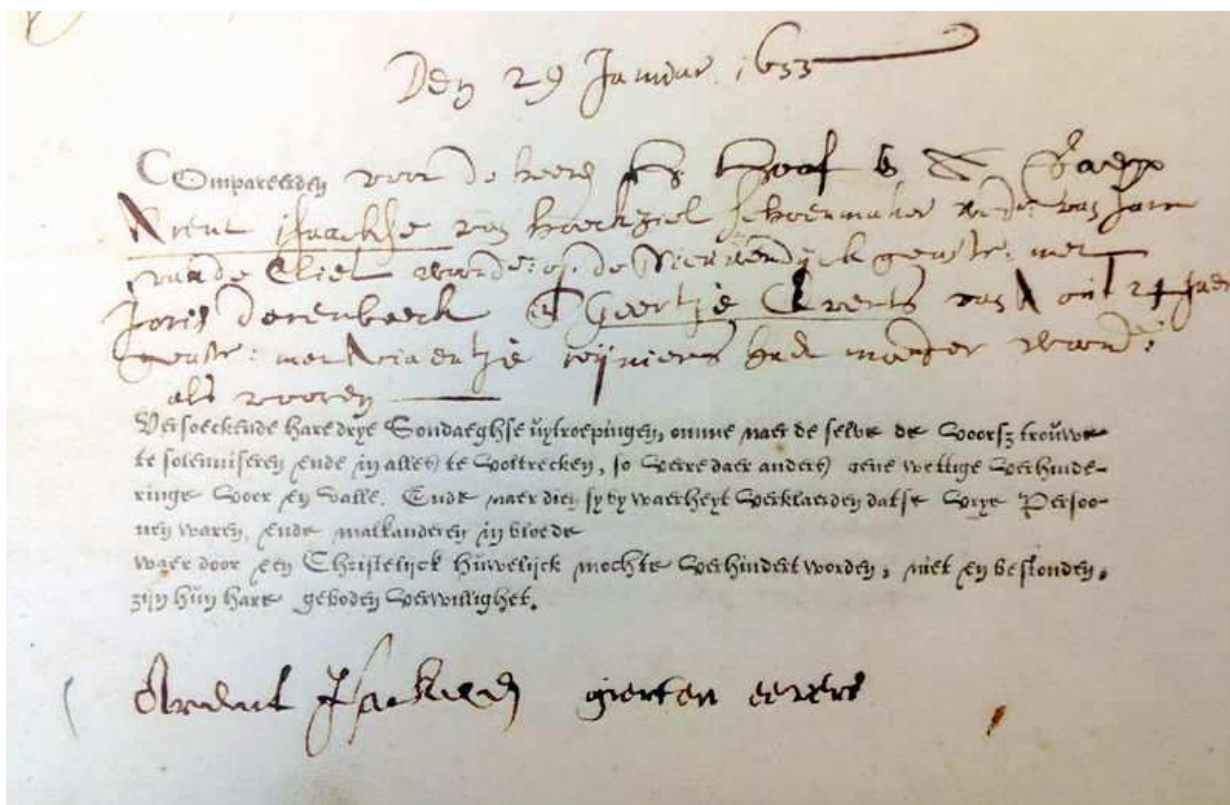 Den 29 Januar. 1653
Compareerden voor de heeren Hoof &
Arent ISaackse van schoenmaker
vande Vliet woon: op de Nieuwendijck geass: met
Joris Dorenbeeck & Geertje Everts van A out 24 Jaer
geass: met Ariaentje reijniers haer moeder woon:
als vooren
Versoeckende hare drye Sondaeghse uytroepingen, omme naer de selve de Voorsz trouwe
te solemniseren ende in alles te Voltrecken, so Verre daer anders gene wettige Verhinde-
ringe Voor en Valle. Ende naer dien sy by waerheyt Verklaerden datse Vrye Persoo-
nen waren, ende malkanderen in bloede
waer door een Christelijck Huwelijck mochte Verhindert worden, niet en bestonden,
zijn hun hare geboden Verwillighet.
Arent Isacksen gierten evers